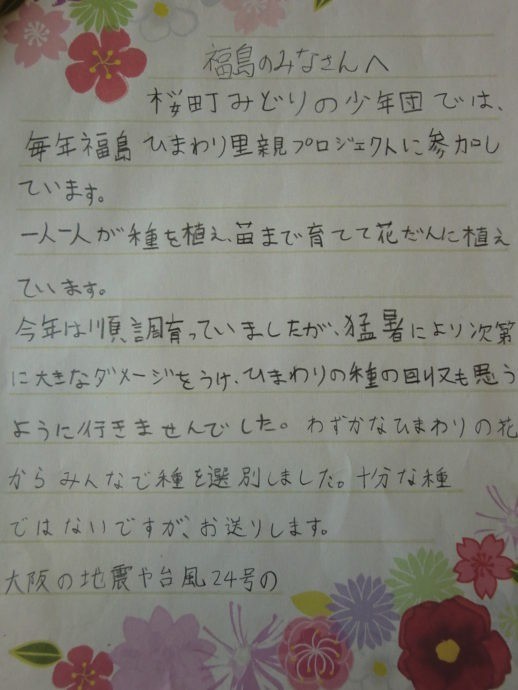 福島のみなさんへ
桜町みどりの少年団では、
毎年福島ひまわり里親プロジェクトに参加し
ています。
一人一人が種を植え、苗まで育てて花だんに植え
ています。
今年は順調育っていましたが、猛暑により次第
に大きなダメージをうけ、ひまわりの種の回収も思う
ように行きませんでした。わずかなひまわりの花
からみんなで種を選別しました。十分な種
ではないですが、お送りします。
大阪の地震や台風24号の